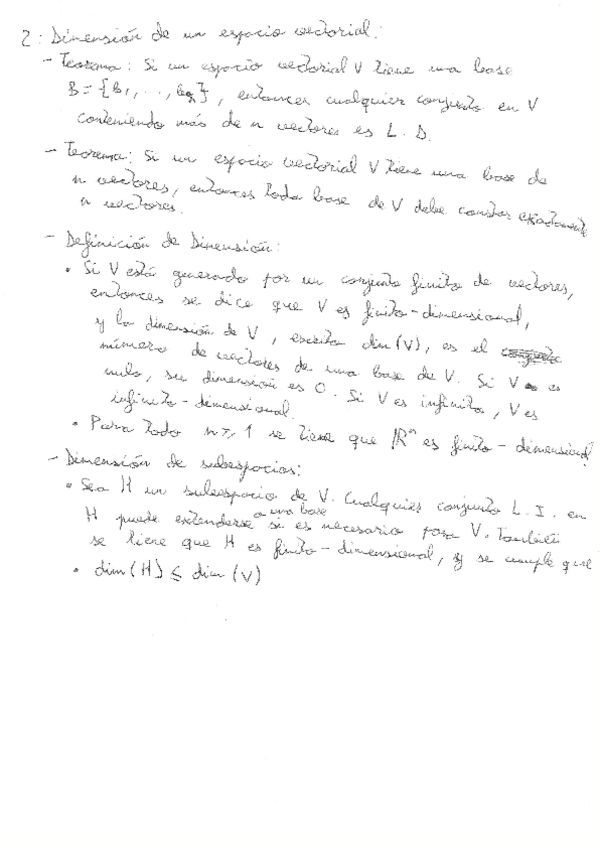 2: Dimensión de un espacio vectorial:
- Teorema: Si un espacio vectorial V tiene una base
B = {b₁, ..., bₙ}, entonces cualquier conjunto en V
conteniendo más de n vectores es L.D.
- Teorema: Si un espacio vectorial V tiene una base de
n vectores, entonces toda base de V debe constar exactamente
n vectores.
- Definición de Dimensión:
• Si V está generado por un conjunto finito de vectores,
entonces se dice que V es finito-dimensional,
y la dimensión de V, escrita dim(V), es el
número de vectores de una base de V. Si V es
nulo, su dimensión es 0. Si V es infinito, V es
infinito-dimensional.
• Para todo n ≥ 1 se tiene que ℝⁿ es finito-dimensional
- Dimensión de subespacios:
• Sea H un subespacio de V. Cualquier conjunto L.I. en
H puede extenderse a una base si es necesario para V. También
se tiene que H es finito-dimensional, y se cumple que
• dim(H) ≤ dim(V)